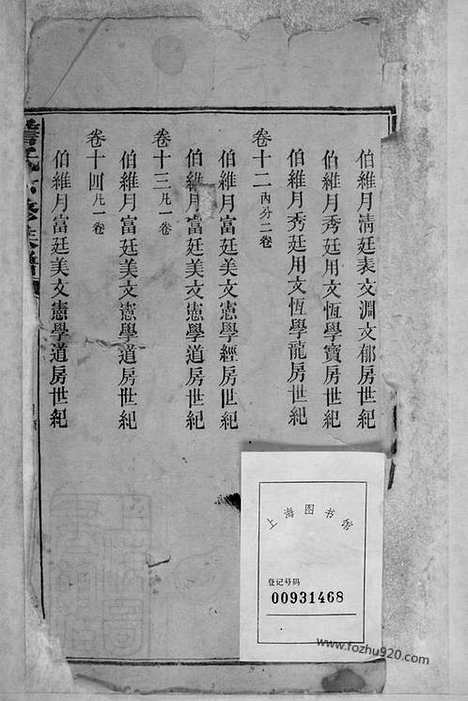 伯維月淸廷表文淵文郁房世紀
伯維月秀廷用文恆學寶房世紀
伯維月秀廷用文恆學龍房世紀
卷十二內分二卷
伯維月富廷美文憲學經房世紀
伯維月富廷美文憲學道房世紀
卷十三凡一卷
伯維月富廷美文憲學道房世紀
卷十四凡一卷
伯維月富廷美文憲學道房世紀
上海图书馆
登记号码
00931468
www.fozhu920.com